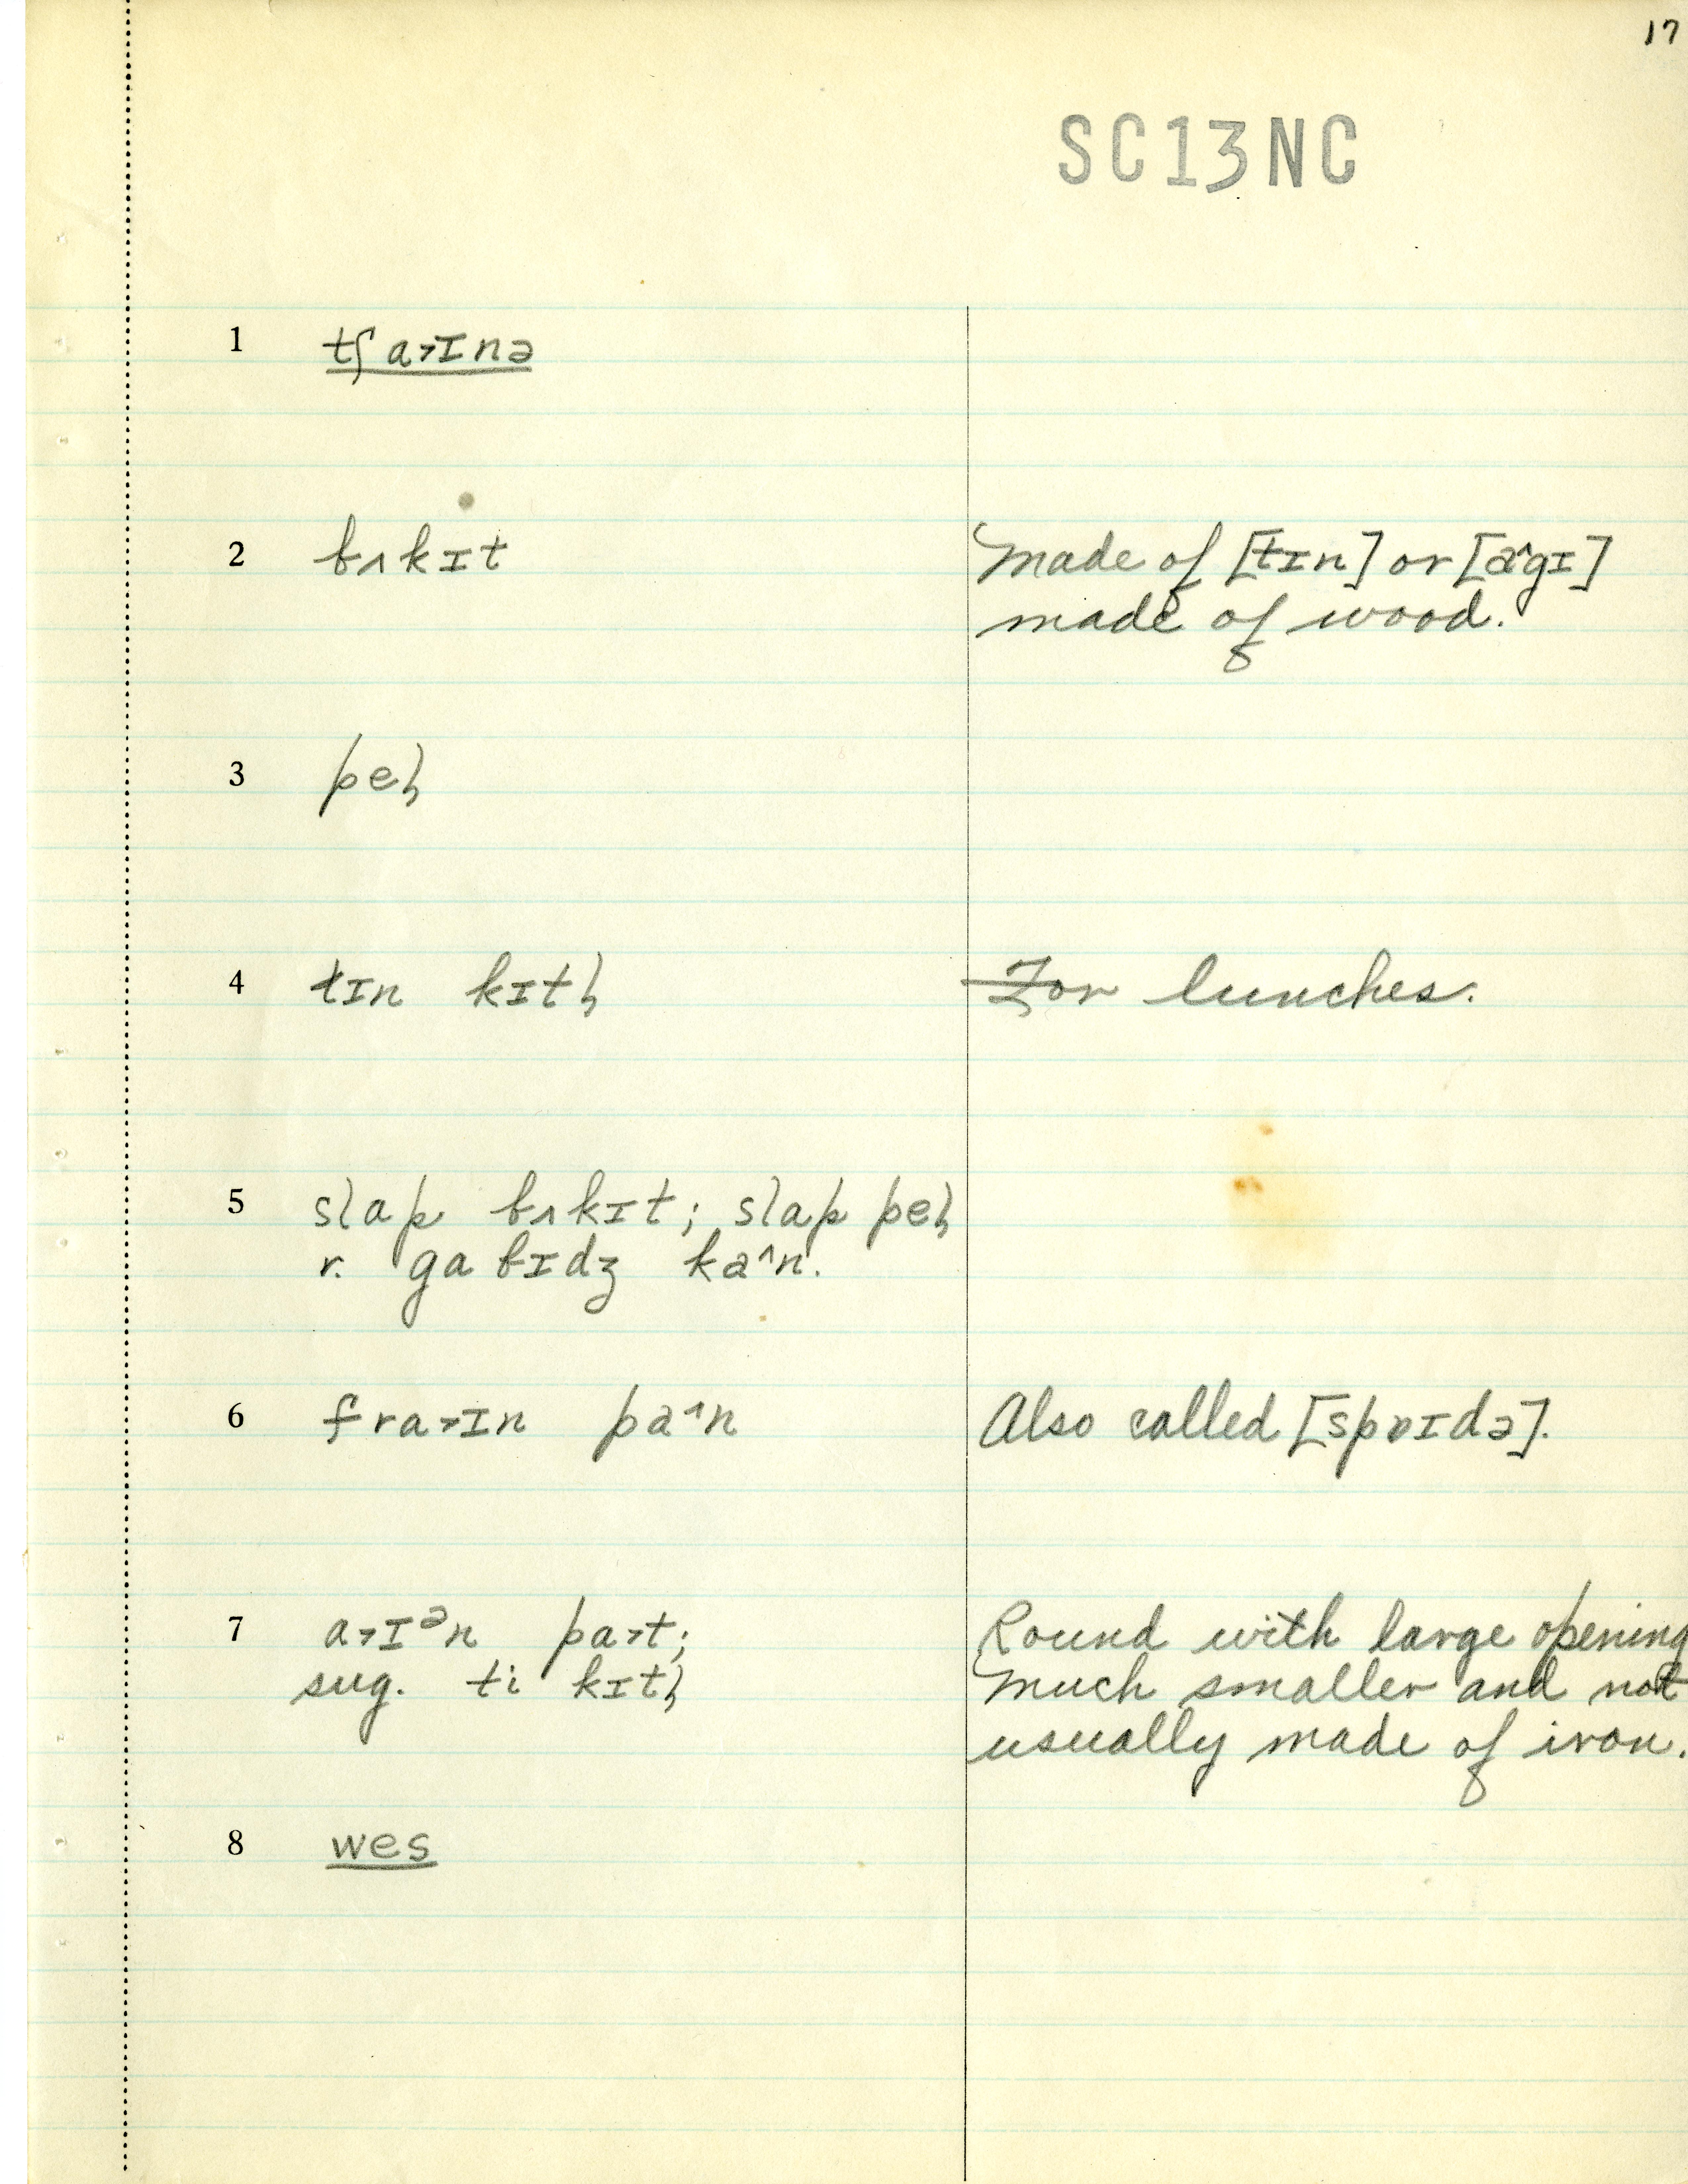 17
SC13NC
1 tʃa˃ɪnə
2 bʌkɪt Made of [tɪn] or [a^gɪ]
made of wood.
3 peɫ
4 tɪn kɪtɫ For lunches.
5 slap bʌkɪt; slap peɫ
r. gabɪdʒ ka^n.
6 fra˃ɪn pa^n Also called [spɒɪdə].
7 a˃ɪᵊn pa˃t; Round with large opening
sug. ti kɪtɫ Much smaller and not
usually made of iron.
8 wes